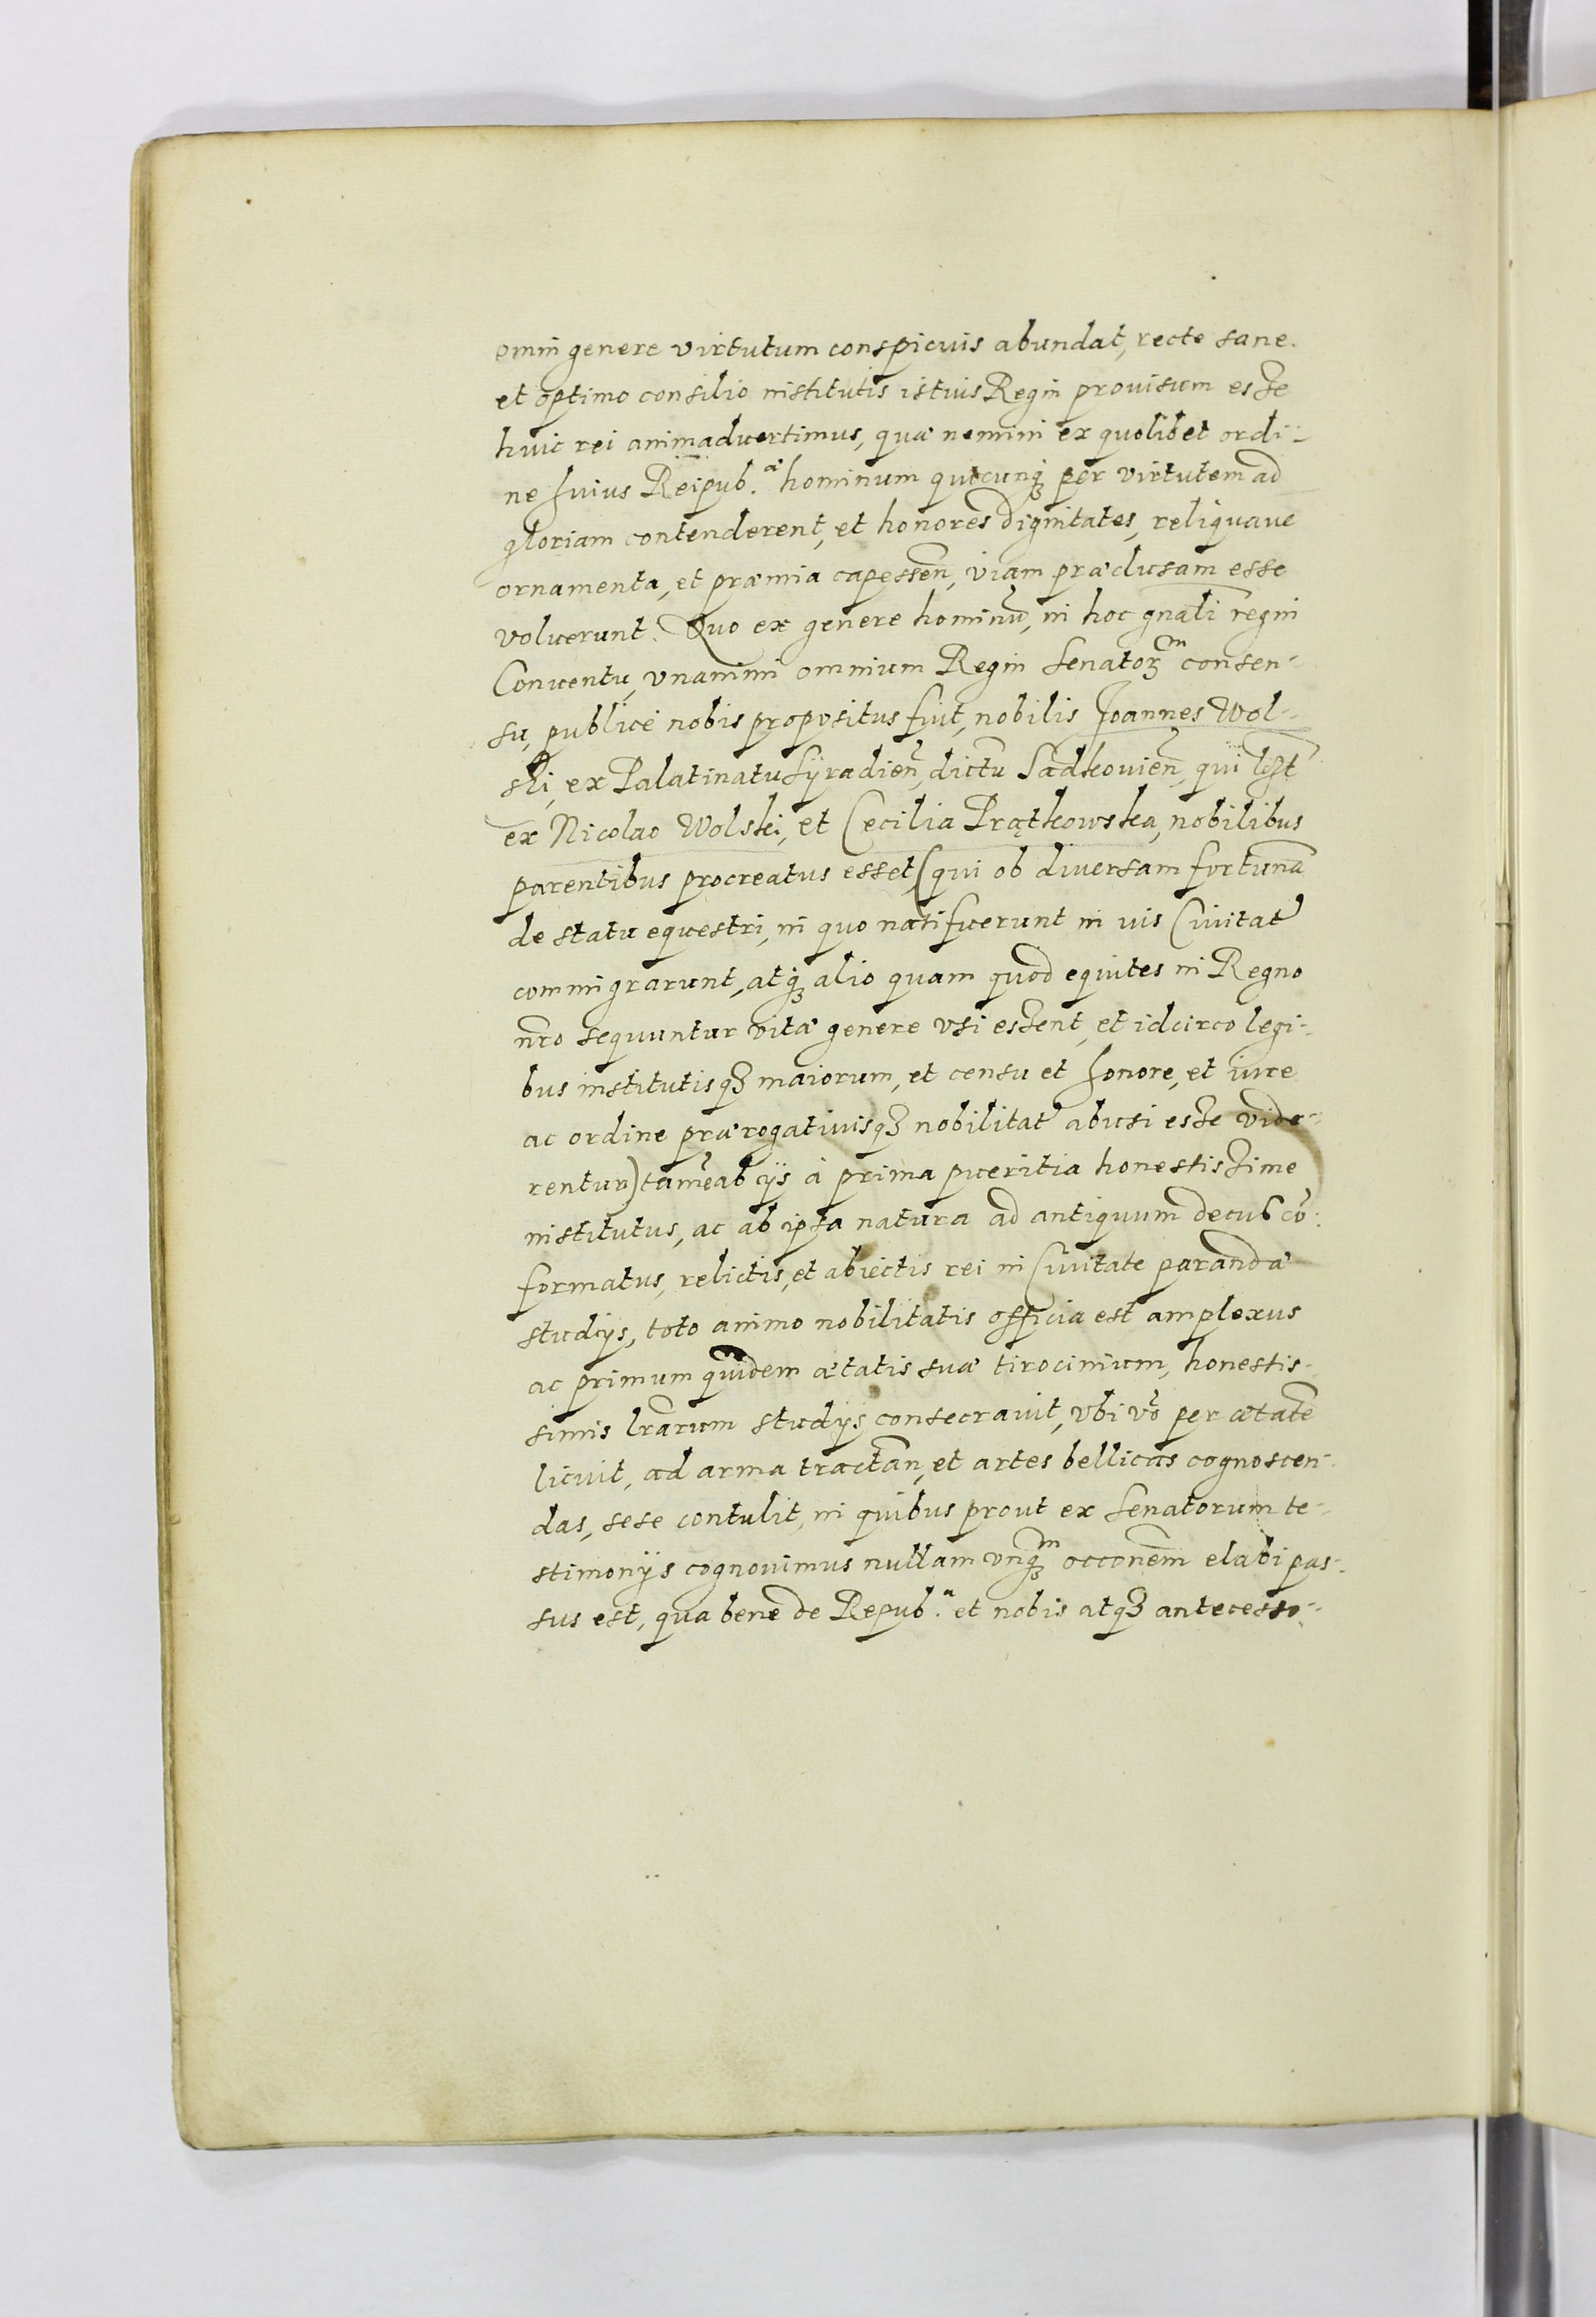 omni genere virtutum conspicuis abundat, recte sane.
et optimo consilio institutis istius Regni prouisum esse
huic rei animaduertimus, quæ nemini ex quolibet ordi-
ne huius Reipub.æ hominum qui cunq; per virtutem ad
gloriam contenderent, et honores dignitates, reliquaue
ornamenta, et præmia capessen̄, viam præclusam esse
voluerunt. Quo ex genere hominū, in hoc gn̄ali regni
Conuentu, vnanimi omnium Regni Senatorᵐ consen-
su, publice nobis propositus fuit, nobilis Joannes Wol-
ski, ex Palatinatu Syradien̄, dictu Sadkouien̄, qui l
ex Nicolao Wolski, et Cecilia Prątkowska, nobilibus
parentibus procreatus esset (qui ob diuersam fortunā
de statu equestri, in quo nati fuerunt in uis Ciuitat
commigrarunt, atq; alio quam quod equites in Regno
nr̄o sequuntur vitæ genere vsi essent, et idcirco legi-
bus institutisq; maiorum, et censu et honore, et iure
ac ordine prærogatiuisq; nobilitat abusi esse vide-
rentur) tamē ab ijs à prima pueritia honestissime
institutus, ac ab ipsa natura ad antiquum decus cō-
formatus, relictis, et abiectis rei in Ciuitate parandæ
studijs, toto animo nobilitatis officia est amplexus
ac primum quidem ætatis suæ tirocinium, honestis-
simis lr̄arum studijs consecrauit, vbi vō per ætatē
licuit, ad arma tractan̄, et artes bellicas cognoscen-
das, sese contulit, in quibus prout ex Senatorum te-
stimonijs cognouimus nullam vnq;ᵐ occonem̄ elabi pas-
sus est, qua bene de Repub.ᵃ et nobis atq; antecesso-